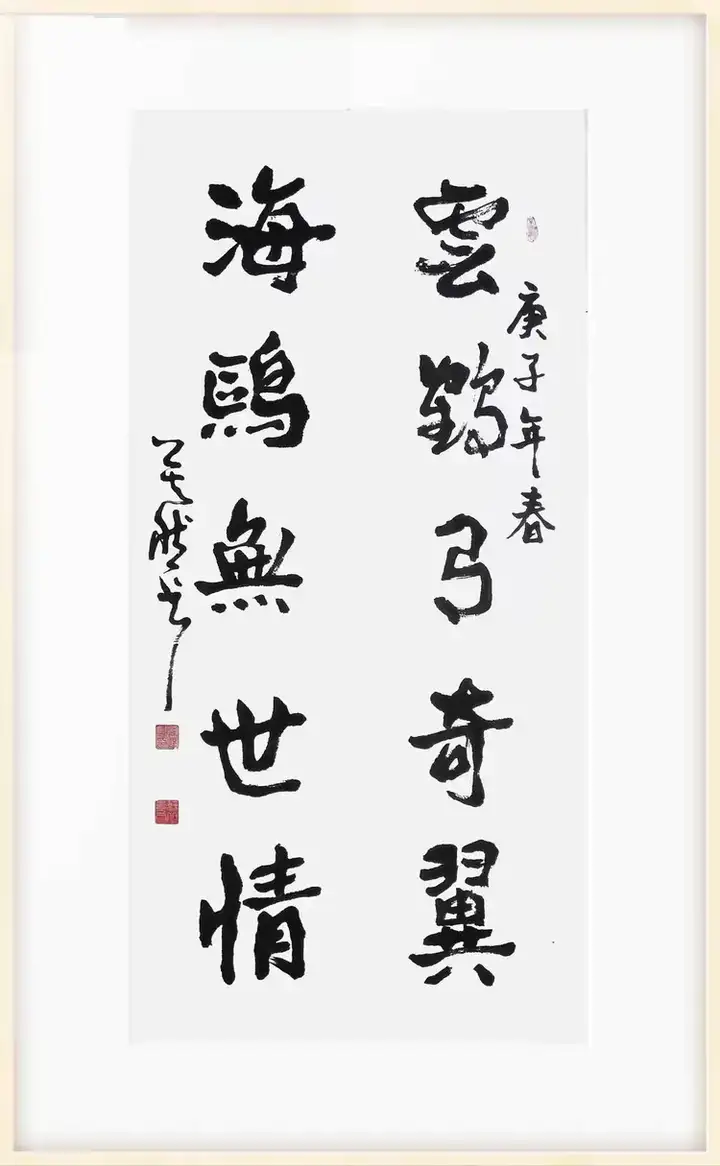 庚子年春
雲鶴弓奇翼
海鷗無世情